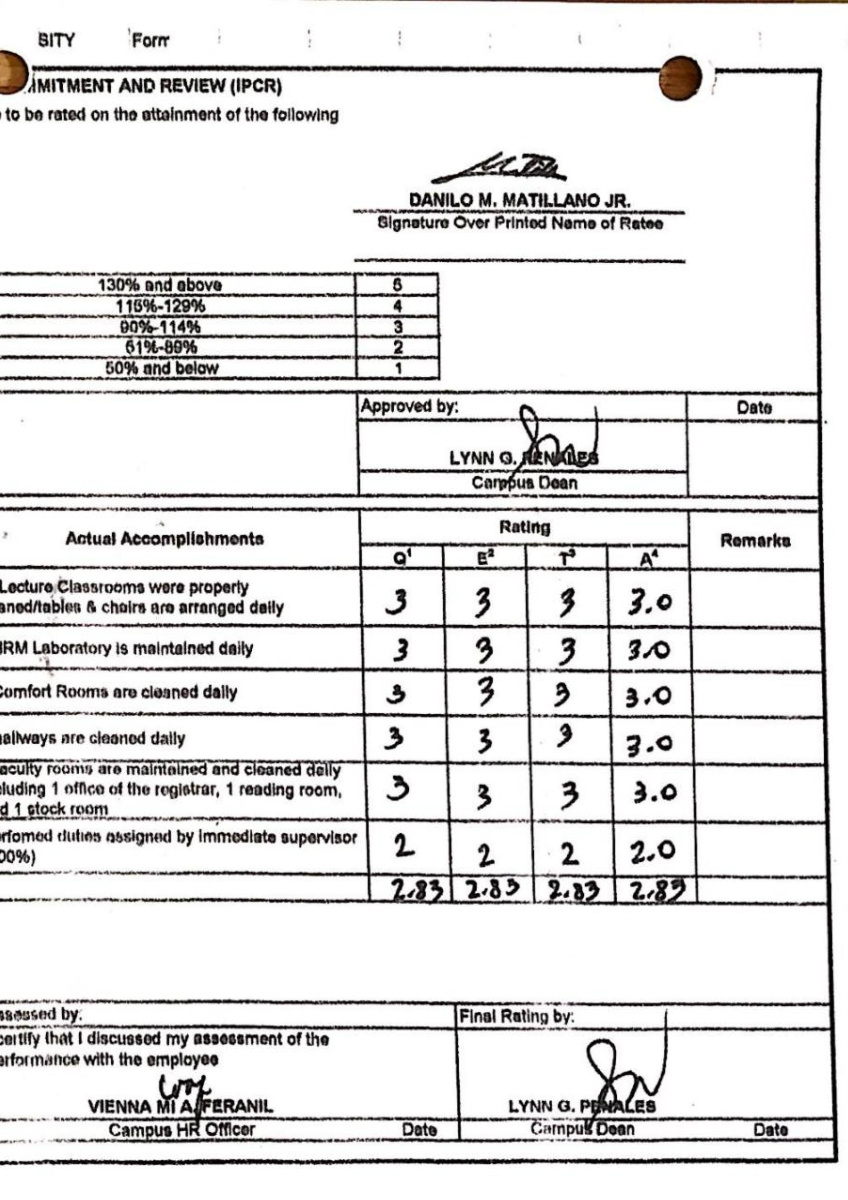 SITY Form
MITMENT AND REVIEW (IPCR)
to be rated on the attainment of the following
DANILO M. MATILLANO JR.
Signature Over Printed Name of Ratee
130% and above 5
115%-129% 4
90%-114% 3
51%-89% 2
50% and below 1
Approved by: Date
LYNN G. PENALES
Campus Dean
Actual Accomplishments Rating Remarks
Q¹ E² T³ A⁴
Lecture Classrooms were properly
aned/tables & chairs are arranged daily 3 3 3 3.0
HRM Laboratory is maintained daily 3 3 3 3.0
Comfort Rooms are cleaned daily 3 3 3 3.0
allways are cleaned daily 3 3 3 3.0
aculty rooms are maintained and cleaned daily
cluding 1 office of the registrar, 1 reading room,
d 1 stock room 3 3 3 3.0
erfomed duties assigned by immediate supervisor
00%) 2 2 2 2.0
2.83 2.83 2.83 2.83
ssessed by: Final Rating by:
certify that I discussed my assessment of the
erformance with the employee
VIENNA MI A. FERANIL LYNN G. PENALES
Campus HR Officer Date Campus Dean Date